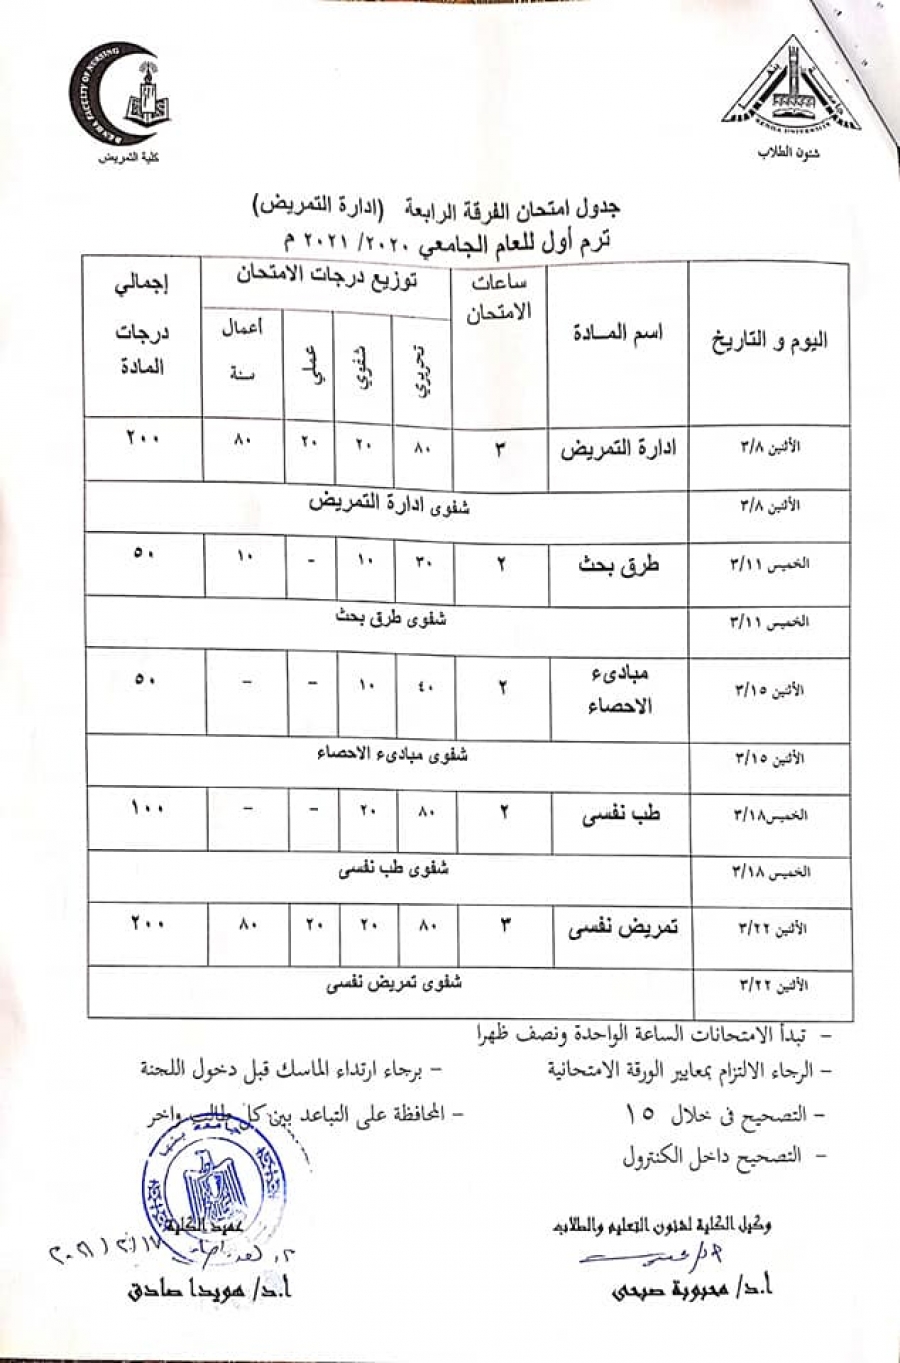 BENHA FACULTY OF NURSING
كلية التمريض
BENHA UNIVERSITY
شئون الطلاب
جدول امتحان الفرقة الرابعة (ادارة التمريض)
ترم أول للعام الجامعي ٢٠٢٠/ ٢٠٢١ م
اليوم و التاريخ
اسم المــادة
ساعات الامتحان
توزيع درجات الامتحان
تحريري
شفوي
عملي
أعمال سنة
إجمالي درجات المادة
الأثنين ٣/٨ ادارة التمريض ٣ ٨٠ ٢٠ ٢٠ ٨٠ ٢٠٠
الأثنين ٣/٨ شفوى ادارة التمريض
الخميس ٣/١١ طرق بحث ٢ ٣٠ ١٠ - ١٠ ٥٠
الخميس ٣/١١ شفوى طرق بحث
الأثنين ٣/١٥ مبادىء الاحصاء ٢ ٤٠ ١٠ - - ٥٠
الأثنين ٣/١٥ شفوى مبادىء الاحصاء
الخميس٣/١٨ طب نفسى ٢ ٨٠ ٢٠ - - ١٠٠
الخميس ٣/١٨ شفوى طب نفسى
الأثنين ٣/٢٢ تمريض نفسى ٣ ٨٠ ٢٠ ٢٠ ٨٠ ٢٠٠
الأثنين ٣/٢٢ شفوى تمريض نفسى
- تبدأ الامتحانات الساعة الواحدة ونصف ظهرا
- الرجاء الالتزام بمعايير الورقة الامتحانية - برجاء ارتداء الماسك قبل دخول اللجنة
- التصحيح فى خلال ١٥ - المحافظة على التباعد بين كل طالب واخر
- التصحيح داخل الكنترول
جامعة بنها
وكيل الكلية لشئون التعليم والطلاب
عميد الكلية
أ.د/ محبوبة صبحى
أ.د/ هويدا صادق